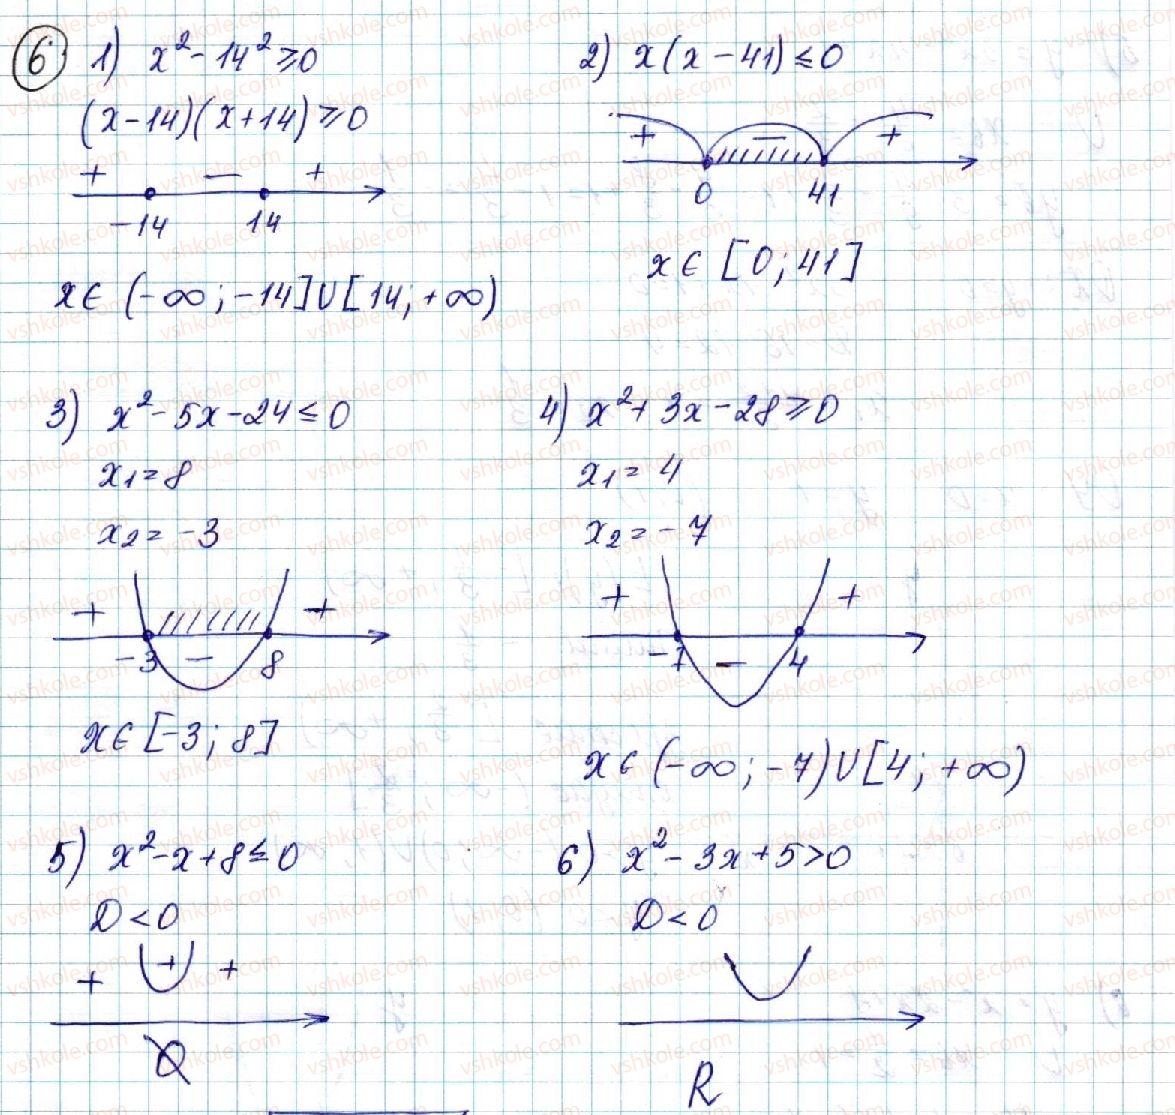 6. 1) x² - 14² ≥ 0
(x-14)(x+14) ≥ 0
+ − +
-14 14
x ∈ (-∞; -14] ∪ [14; +∞)
2) x(x-41) ≤ 0
+ − +
0 41
x ∈ [0; 41]
3) x² - 5x - 24 ≤ 0
x₁ = 8
x₂ = -3
+ +
-3 − 8
x ∈ [-3; 8]
4) x² + 3x - 28 ≥ 0
x₁ = 4
x₂ = -7
+ +
-7 − 4
x ∈ (-∞; -7) ∪ [4; +∞)
5) x² - x + 8 ≤ 0
D < 0
+ + +
Ø
6) x² - 3x + 5 > 0
D < 0
R
vshkole.com